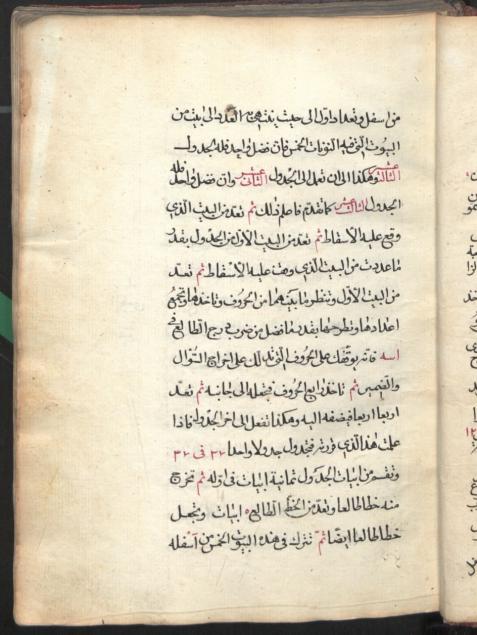 من اسفل وتعداد اوله الى حيث ينتهي العدد الى ابيت من
البيوت التي فيه النوبات الخمس فان فضل واحد فله الجدول
الثالث عشر وهكذا الى ان تصل الى الجدول الثاني عشر وان فضل واحد فله
الجدول الثالث عشر كما تقدم فاعلم ذلك ثم تعد من البيت الذي
وقع عليه الاسقاط ثم تعد من البيت الاول من الجدول بقدر
ما عددت من البيت الذي وقف عليه الاسقاط ثم تعد
من البيت الاول وتنظر ما بينهما من الحروف وتاخذها وتجمع
اعدادها وتطرحها بقدر ما فضل من ضرب درج الطالع في
اسه فانه يوقفك على الحروف التي تدلك على اخراج السوال
والضمير ثم تاخذ رابع الحروف فتجعله الى جانبه ثم تعد
اربعا اربعا فيضفه اليه وهكذا تفعل الى اخر الجدول فاذا
علمت هذا الذي قررته فتجدول جدولا واحدا ٣٢ في ٣٢
وتقسم من ابيات الجدول ثمانية ابيات في اوله ثم تخرج
منه خطا طالعا وتعد من الخط الطالع ٥ ابيات وتجعل
خطا طالعا ايضا ثم تترك في هذه البيوت الخمس من اسفله